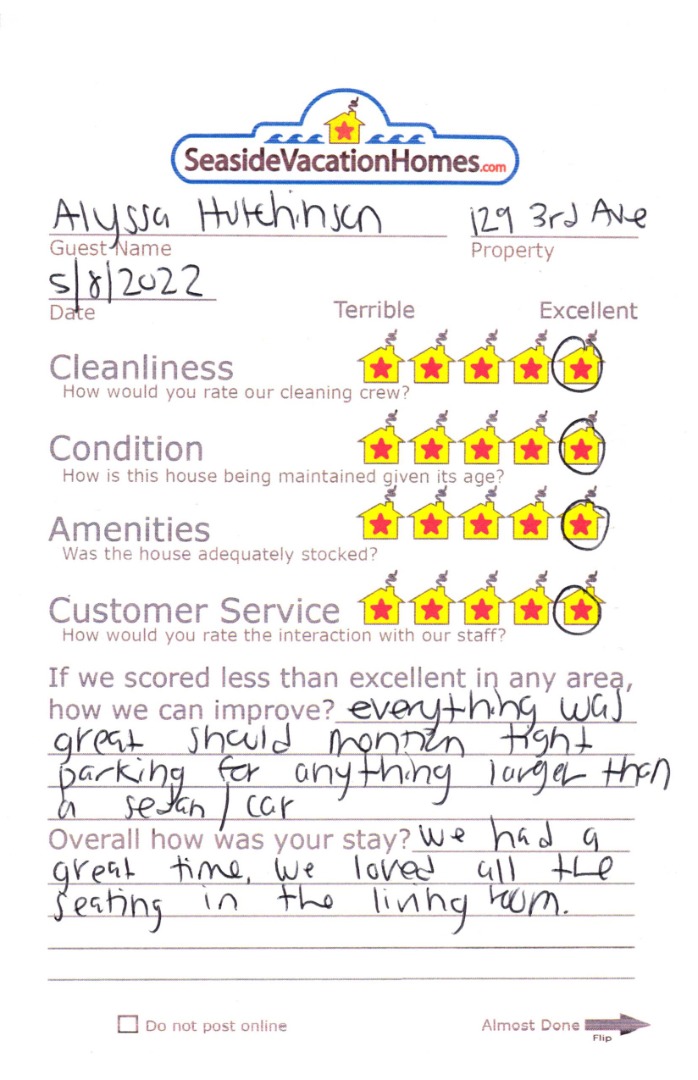 SeasideVacationHomes.com
Alyssa Hutchinson 129 3rd Ave
Guest Name Property
5/8/2022
Date Terrible Excellent
Cleanliness
How would you rate our cleaning crew?
Condition
How is this house being maintained given its age?
Amenities
Was the house adequately stocked?
Customer Service
How would you rate the interaction with our staff?
If we scored less than excellent in any area,
how we can improve? everything was
great should tight
parking for anything larger than
a sedan / car
Overall how was your stay? we had a
great time, we loved all the
seating in the living room.
Do not post online Almost Done
Flip